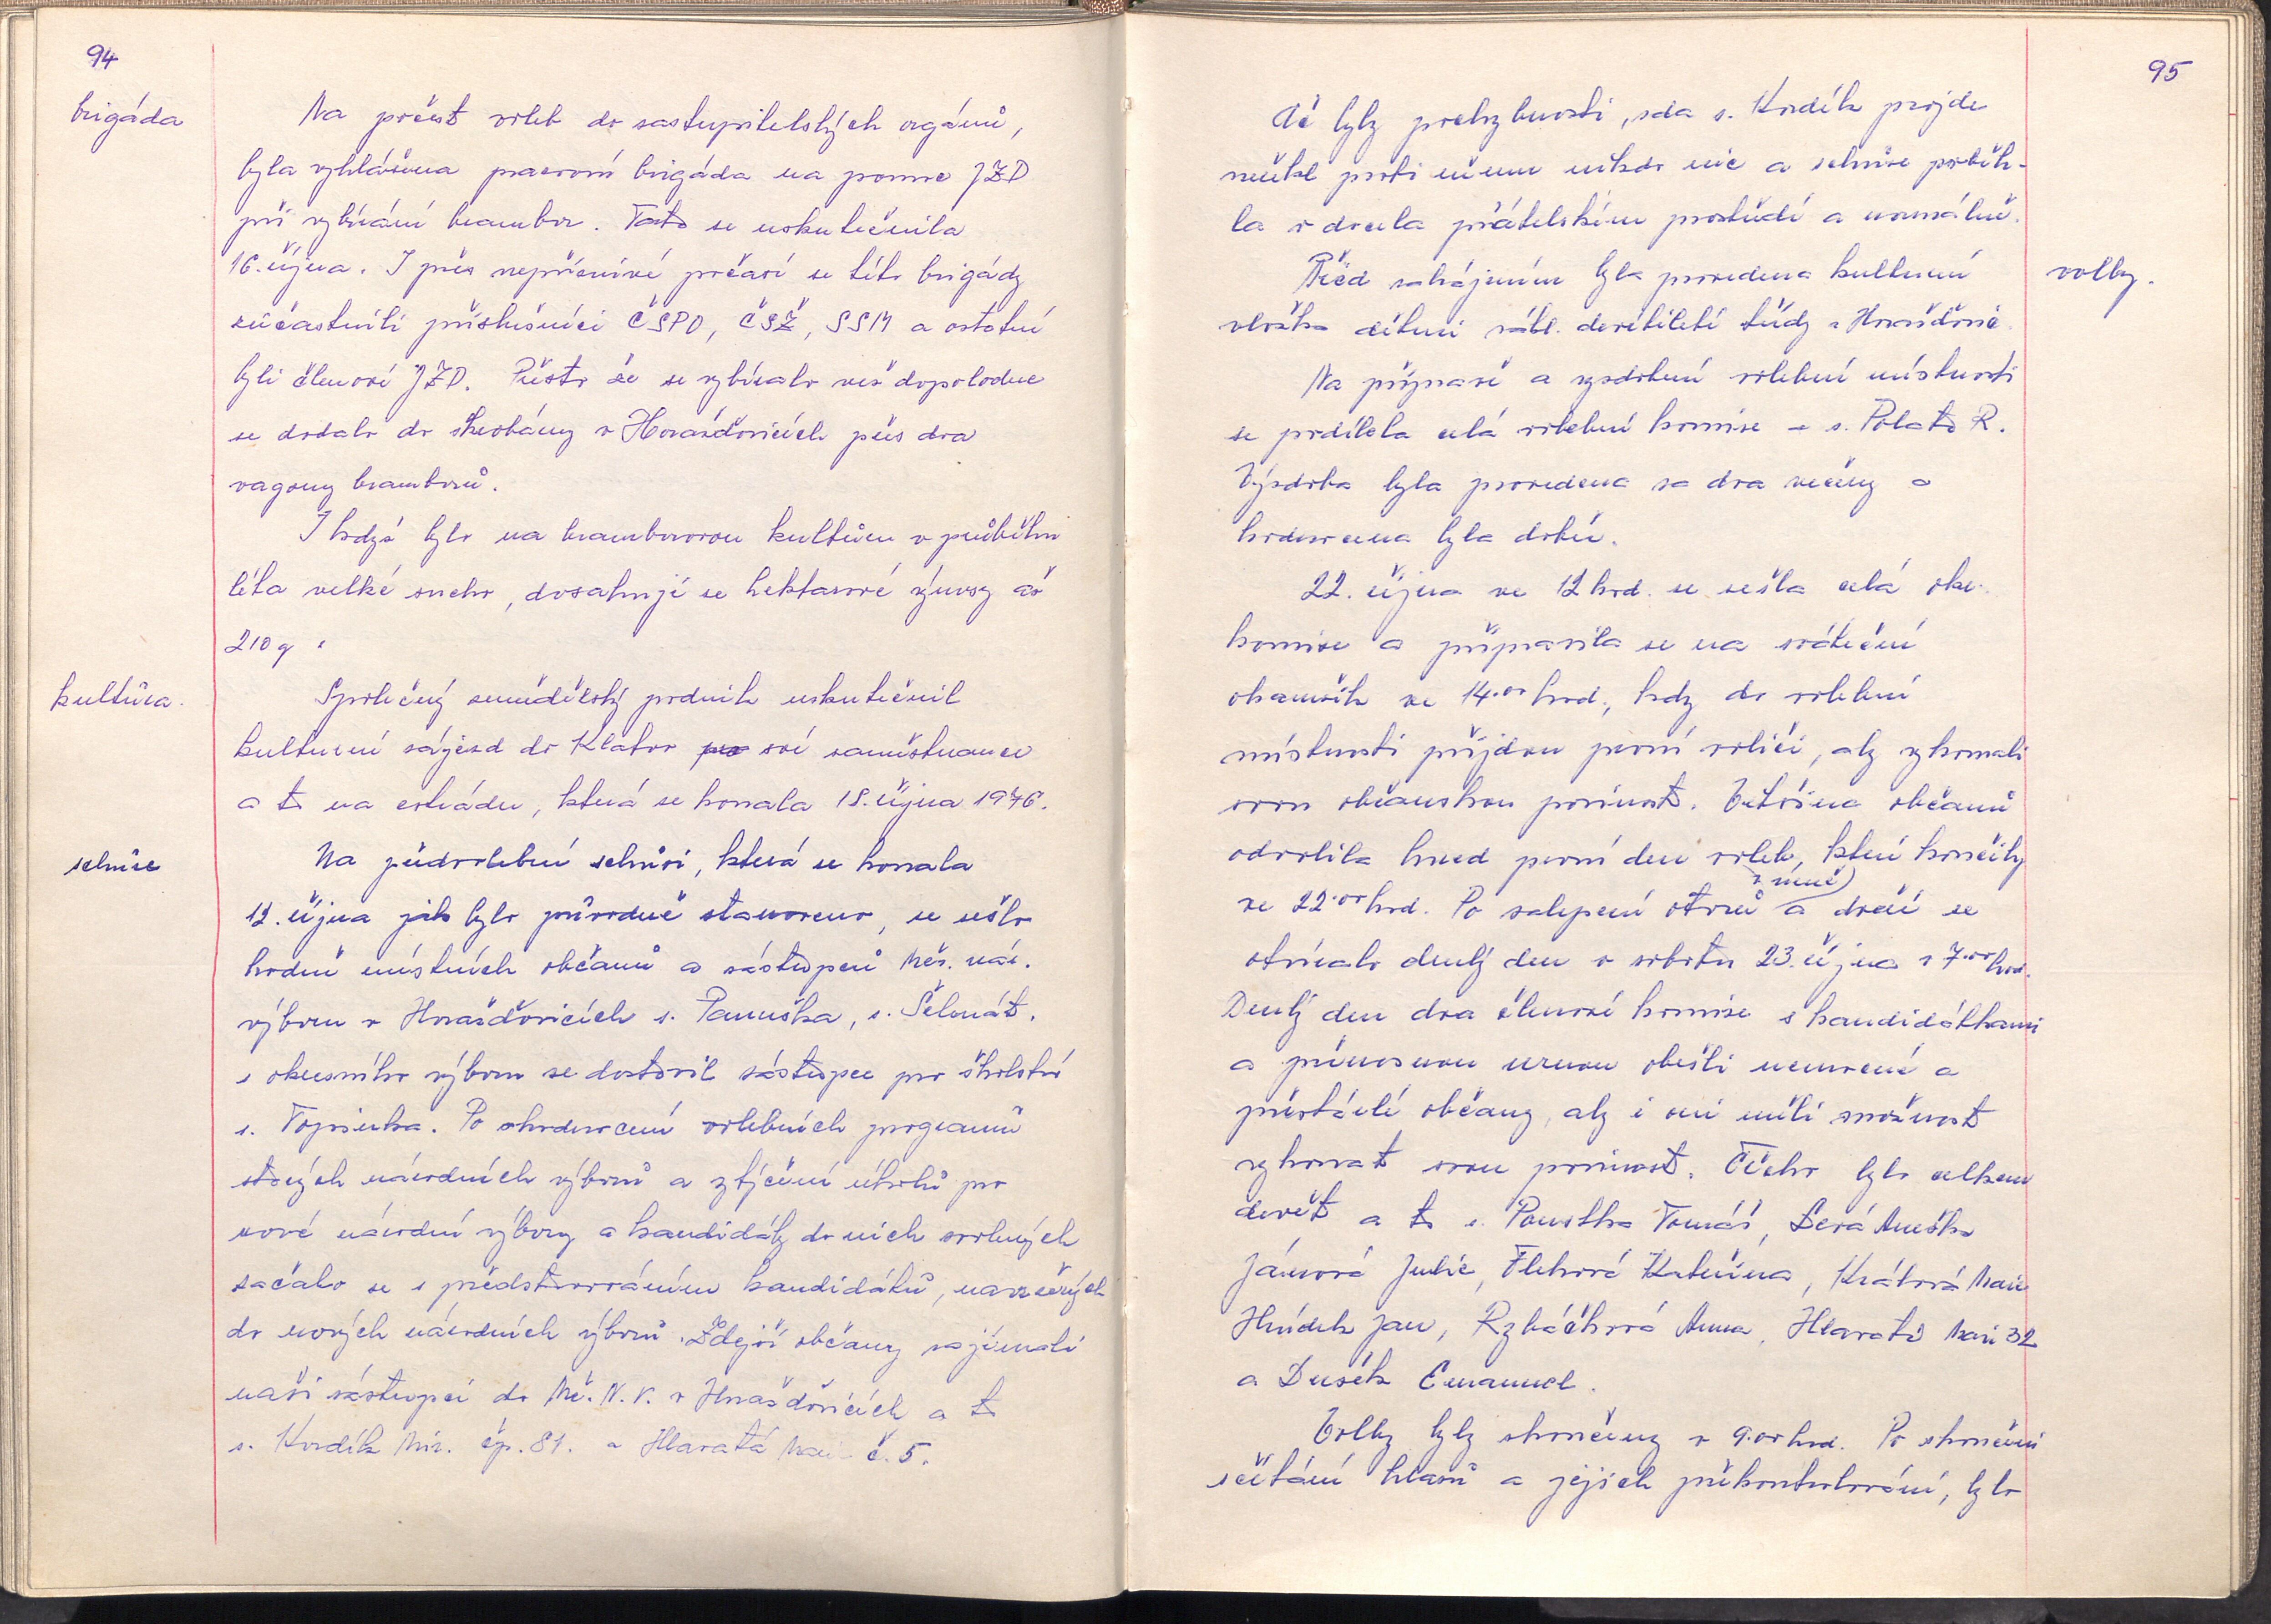 94
brigáda
Na počest voleb do zastupitelských orgánů,
byla vyhlášena pracovní brigáda na pomoc JZD
při vybírání brambor. Tato se uskutečnila
16. října. I přes nepříznivé počasí se této brigády
zúčastnili příslušníci ČSPO, ČSŽ, SSM a ostatní
byli členové JZD. Přesto že se vybíralo než dopoledne
se dodalo do škrobárny v Horažďovicích přes dva
vagony bramborů.
I když bylo na bramborovou kulturu v průběhu
léta velké sucho, dosahují se hektarové výnosy až
210 q.
kultura.
Společný zemědělský podnik uskutečnil
kulturní zájezd do Klatov pro své zaměstnance
a to na estrádu, která se konala 18. října 1976.
schůze
Na předvolební schůzi, která se konala
12. října jak bylo původně stanoveno, se sešlo
hodně místních občanů a zástupců Měs. nár.
výboru v Horažďovicích s. Panuška, s.
z okresního výboru se dostavil zástupce pro školství
s. Topinka. Po zhodnocení volebních programů
starých národních výborů a vytýčení úkolů pro
nové národní výbory a kandidáty do nich zvolených
začalo se s představováním kandidátů, navržených
do nových národních výborů. Zdejší občany zajímali
naši zástupci do Mě. N. V. v Horažďovicích a to
s. Kordík Mir. čp. 81. a Hlavatá Marie č. 5.
95
Ač byly pochybnosti, zda s. Kordík projde
neřekl proti němu nikdo nic a schůze proběh-
la v docela přátelském prostředí a normálně.
volby.
Před zahájením byla provedena kulturní
vložka dětmi zákl. devítileté třídy z Horažďovic.
Na přípravě a vyzdobení volební místnosti
se podílela celá volební komise a s. Polata R.
Výzdoba byla provedena za dva večery a
hodnocena byla dobře.
22. října ve 12 hod. se sešla celá okr.
komise a připravila se na sváteční
okamžik ve 14.00 hod., kdy do volební
místnosti přijdou první voliči, aby vykonali
svou občanskou povinnost. Většina občanů
odvolila hned první den voleb, které končily
ve 22.00 hod. Po zalepení otvorů v urně a dveří se
otvíralo druhý den v sobotu 23. října v 7.00 hod.
Druhý den dva členové komise s kandidátkami
a přenosnou urnou obešli nemocné a
přestárlé občany, aby i oni měli možnost
vykonat svou povinnost. Těcho bylo celkem
devět a to s. Pouska Tomáš, Anežka
Jánová Julie, Kateřina, Králová Marie
Hřídek Jan, Rybáčková Anna, Hlavatá Marie 32
a Dušek Emanuel.
Volby byly skončeny v 9.00 hod. Po skončení
sčítání hlasů a jejich překontrolování, bylo